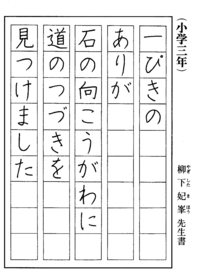 （小学三年）
柳下妃峯先生書
やぎしたきほう
一ぴきの
ありが
石の向こうがわに
道のつづきを
見つけました